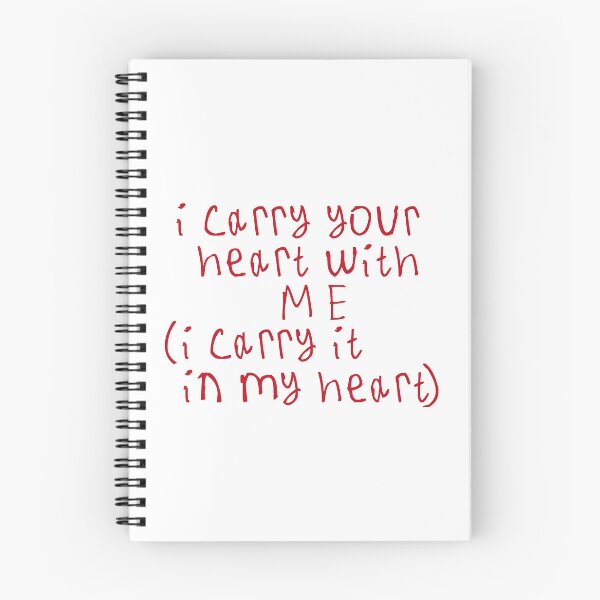 i carry your
heart with
ME
(i carry it
in my heart)